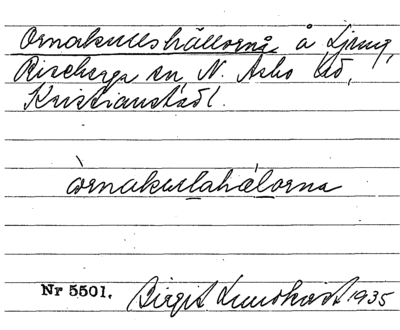 Ornakullshällorna å Ljung,
Riseberga sn, N. Åsbo hd,
Kristianstad l.
òrnakullahálorna
Nr 5501.
Birgit Lundkvist 1935